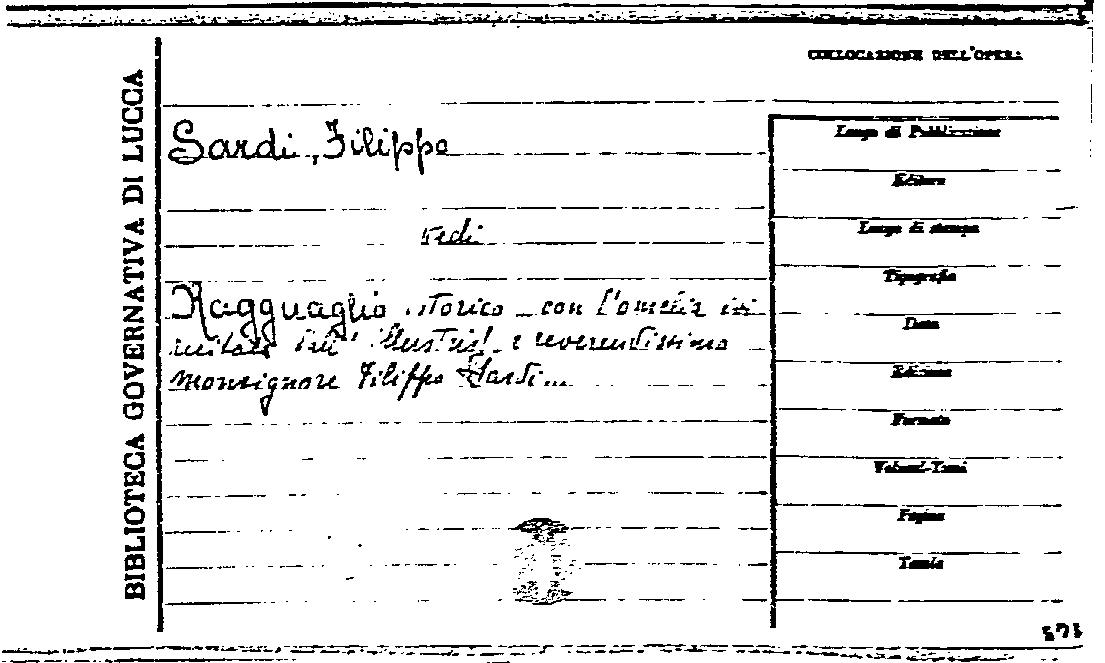 BIBLIOTECA GOVERNATIVA DI LUCCA
COLLOCAZIONE DELL'OPERA
Sardi, Filippo
vedi
Ragguaglio istorico con l'omelia
recitata dall' illustris. e reverendissimo
monsignore Filippo Sardi...
Luogo di Pubblicazione
Editore
Luogo di stampa
Tipografia
Data
Edizione
Formato
Volumi-Tomi
Pagine
Tavole